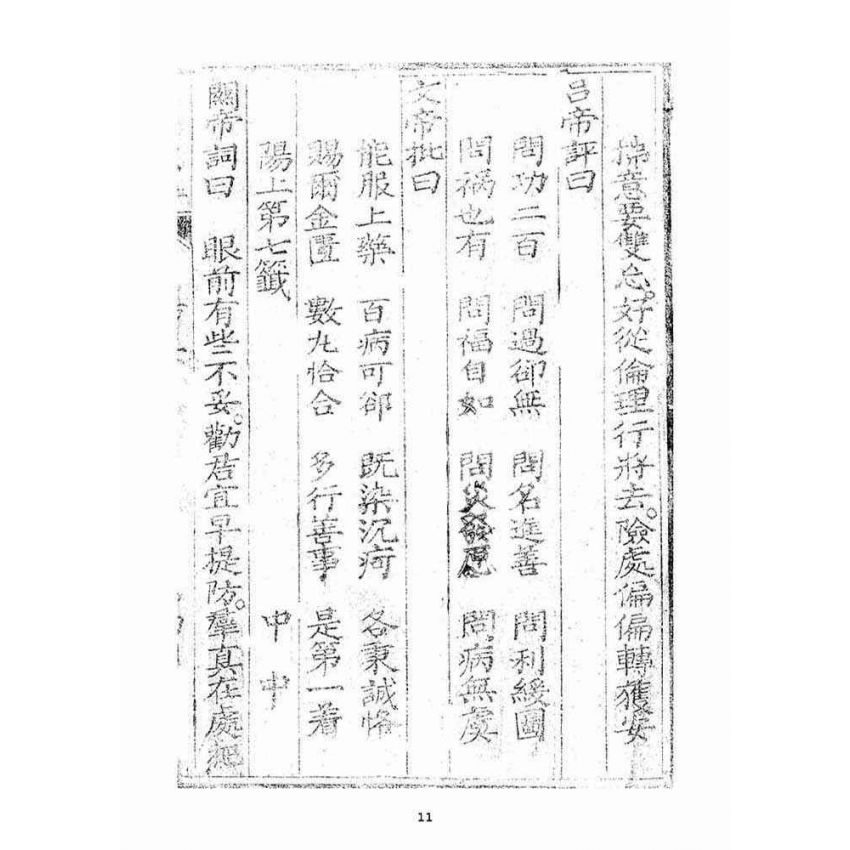 揣意要雙忘。好從倫理行將去。險處偏偏轉獲安
呂帝評曰
問功二百 問過卻無 問名進善 問利緩圖
問禍也有 問福自如 問 問病無虞
文帝批曰
能服上藥 百病可卻 既染沉疴 各秉誠恪
賜爾金匱 數九恰合 多行善事 是第一着
陽上第七籤 中中
關帝詞曰 眼前有些不妥。勸君宜早提防。羣真在處
11